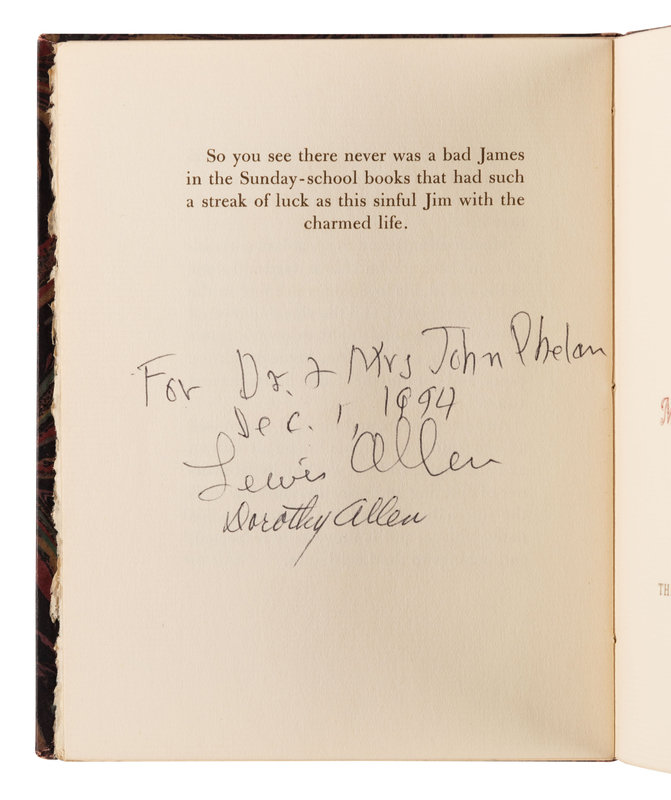 So you see there never was a bad James
in the Sunday-school books that had such
a streak of luck as this sinful Jim with the
charmed life.
For Dr. & Mrs John Phelan
Dec. 1, 1994
Lewis Allen
Dorothy Allen
TH